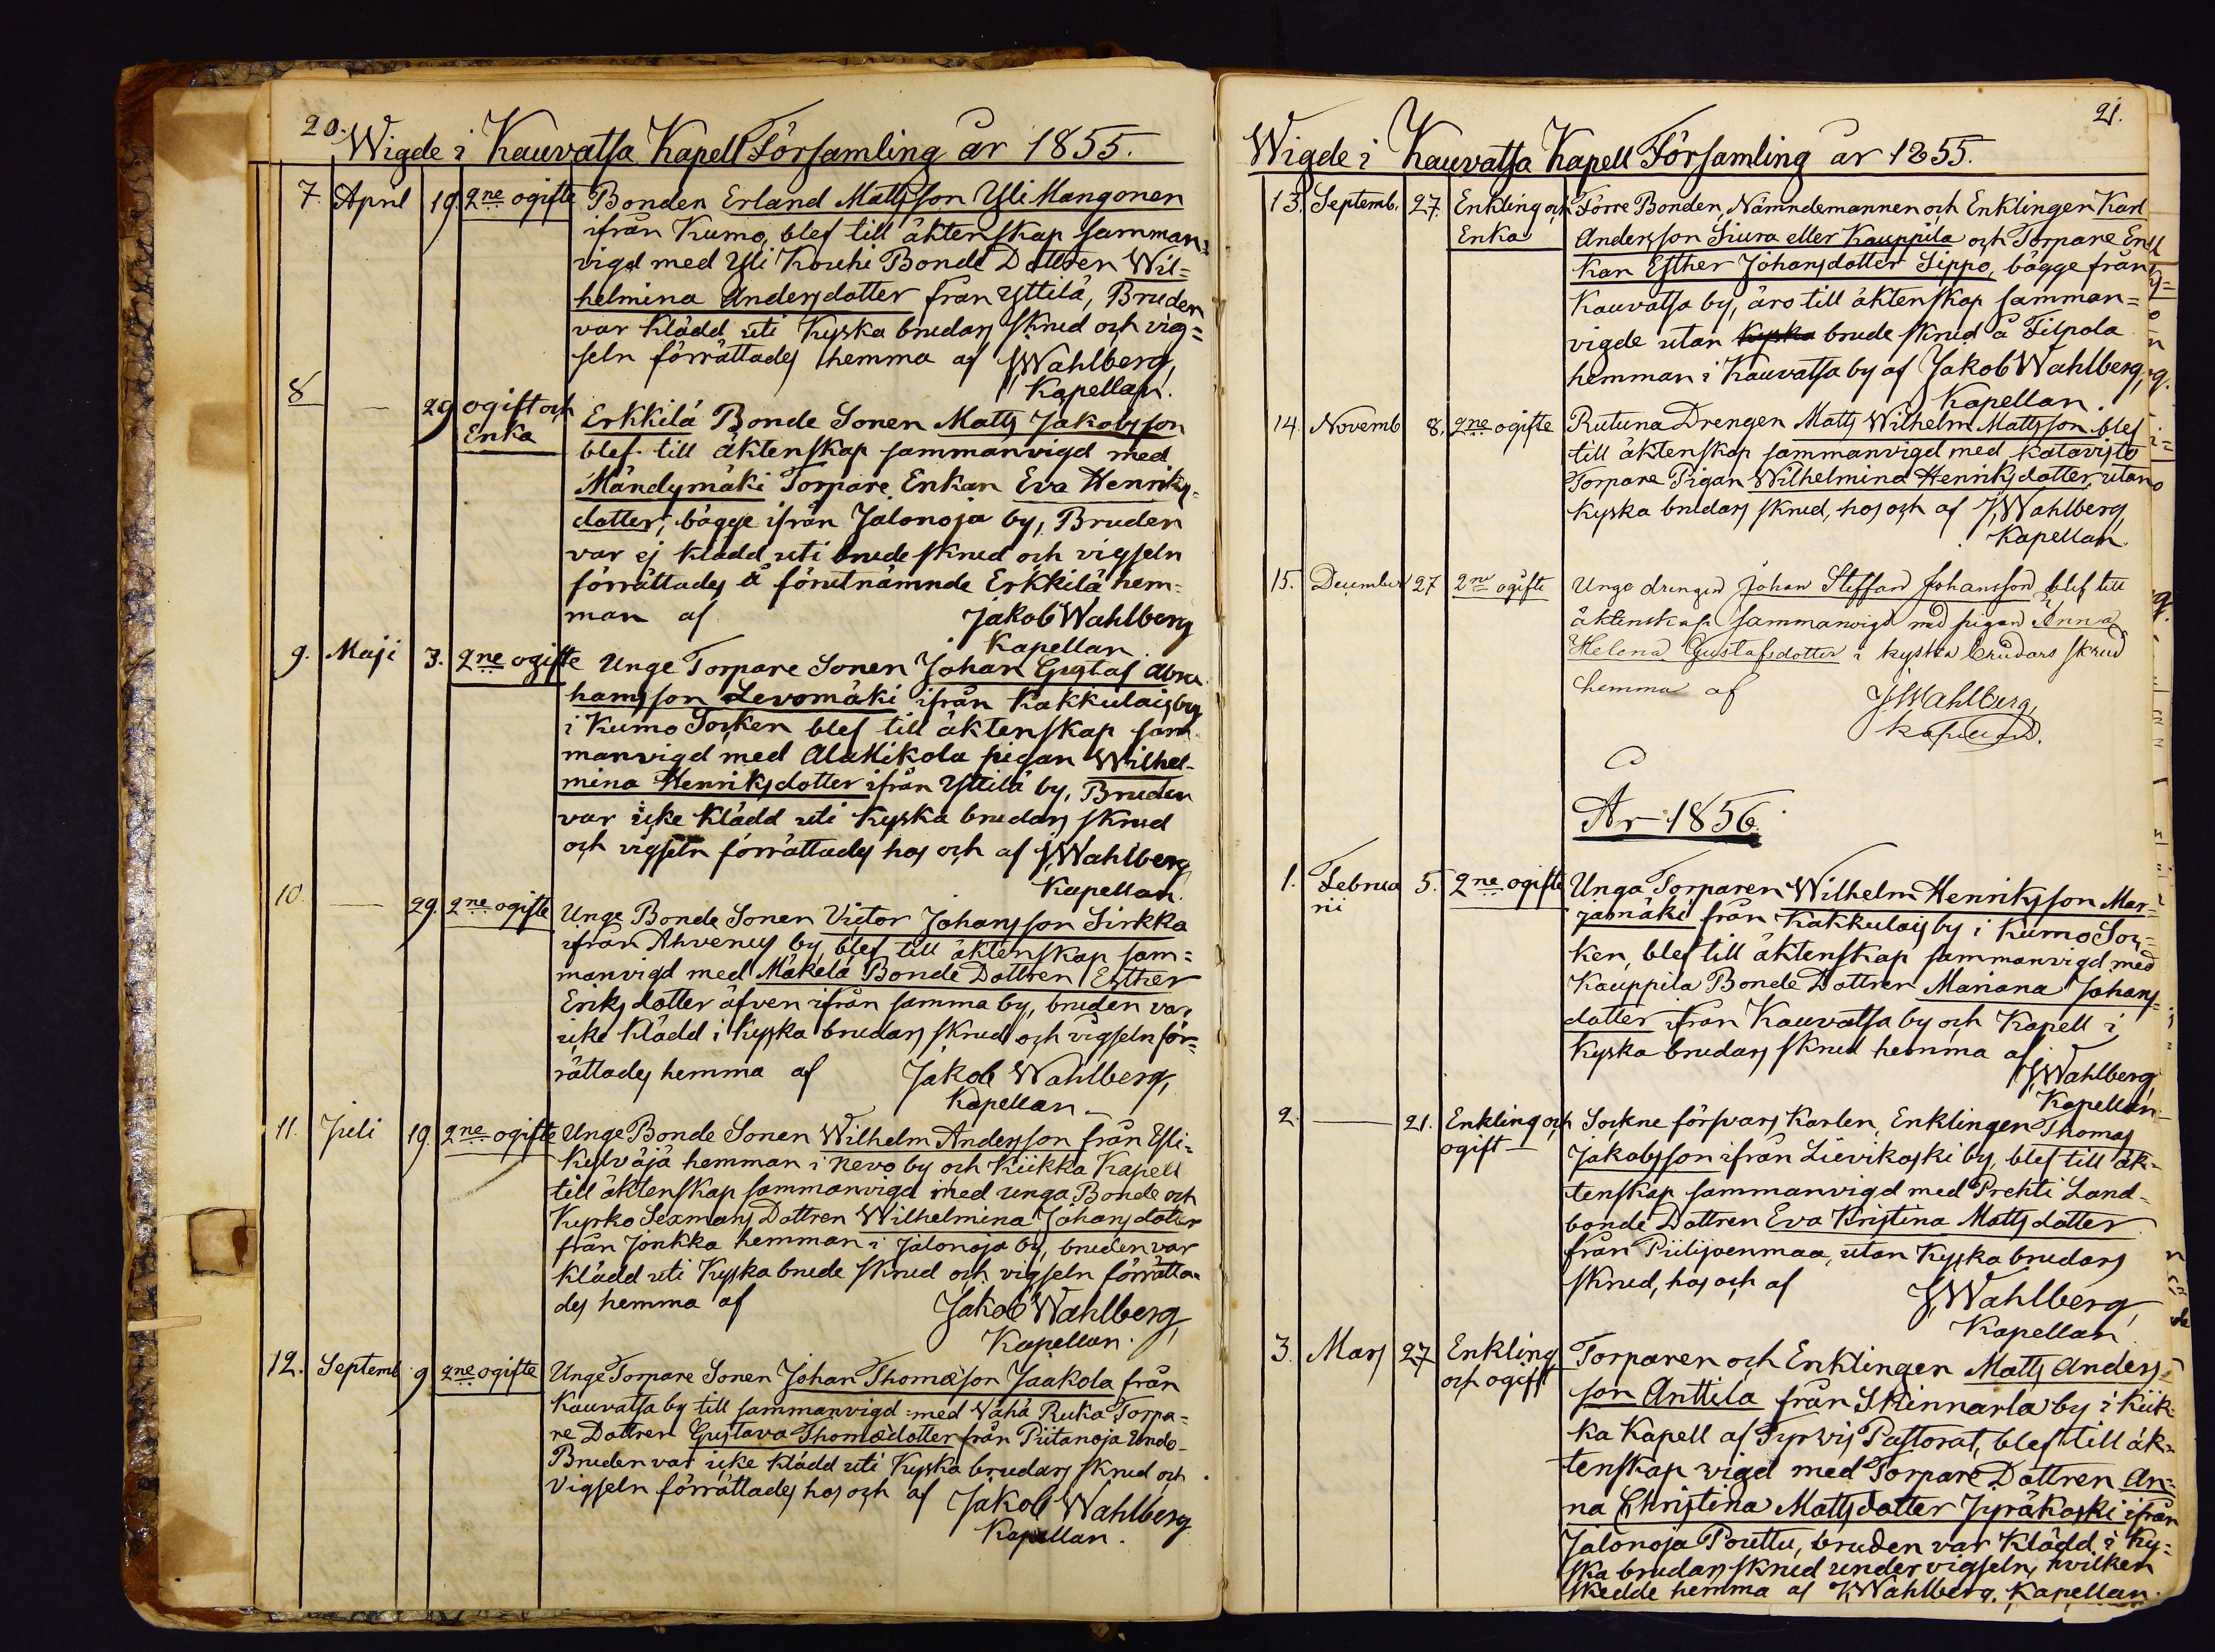 20.
Wigde i Kauvatsa Kapell Församling år 1855.
7. April 19. 2ne ogifte Bonden Erland Mattsson Yli Mangonen
ifrån Kumo, blef till äktenskap samman=
vigd med Yli Kouhi Bonde Dottren Wil=
helmina Andersdotter från Yttilä, Bruden
var klädd uti kyska brudars skrud och vig=
seln förrättades hemma af JWahlberg,
Kapellan.
8 — 29 ogift och Erkkilä Bonde Sonen Matts Jakobsson
Enka blef till äktenskap sammanvigd med
Mändymäki Torpare Enkan Eva Henriks=
dotter, bägge ifrån Jalonoja by, Bruden
var ej klädd uti brude skrud och vigseln
förrättades å förutnämnde Erkkilä hem=
man af Jakob Wahlberg
Kapellan.
9. Maji 3. 2ne ogifte Unge Torpare Sonen Johan Gustaf Abra
hamsson Levomäki ifrån Kakkulais by
i Kumo Socken blef till äktenskap sam
manvigd med Ala Mikola pigan Wilhel-
mina Henriksdotter ifrån Yttilä by, Bruden
var icke klädd uti kyska brudars skrud
och vigseln förrättades hos och af JWahlberg
Kapellan.
10. — 29. 2ne ogifte Unge Bonde Sonen Victor Johansson Sirkka
ifrån Ahvenus by, blef till äktenskap sam=
manvigd med Mäkelä Bonde Dottren Esther
Eriksdotter äfven ifrån samma by, bruden var
icke klädd i kyska brudars skrud och vigseln för=
rättades hemma af Jakob Wahlberg,
Kapellan –
11. Juli 19. 2ne ogifte Unge Bonde Sonen Wilhelm Andersson från Yli=
Kylväjä hemman i Nevo by och Kiikka Kapell
till äktenskap sammanvigd med unga Bonde och
Kyrko Sexmans Dottren Wilhelmina Johansdotter
från Jonkka hemman i Jalonoja by, bruden var
klädd uti kyska brude skrud och vigseln förrätta=
des hemma af Jakob Wahlberg,
Kapellan.
12. Septemb 9 2ne ogifte Unge Torpare Sonen Johan Thomæson Jaakola från
Kauvatsa by till sammanvigd med Vähä Ruka Torpa=
re Dottren Gustava Thomædotter från Piitanoja
Bruden var icke klädd uti kyska brudars skrud och
Vigseln förrättades hos och af Jakob Wahlberg
Kapellan.
21.
Wigde i Kauvatsa Kapell Församling år 1855.
13. Septemb. 27. Enkling och Förre Bonden, Nämndemannen och Enklingen Karl
Enka Andersson Siura eller Kauppila och Torpare En
kan Esther Johansdotter Sippo, bägge från
Kauvatsa by, äro till äktenskap samman=
vigde utan kyska brude skrud å Filpola
hemman i Kauvatsa by af Jakob Wahlberg,
Kapellan
14. Novemb 8. 2ne ogifte Rutuna Drengen Matts Wilhelm Mattsson blef
till äktenskap sammanvigd med Katavisto
Torpare Pigan Wilhelmina Henriksdotter utan
kyska brudars skrud, hos och af JWahlberg
Kapellan.
15. December 27 2ne ogifte Unge drengen Johan Steffan Johansson blef till
äktenskap sammanvigd med pigan Anna
Helena Gustafsdotter i kyska brudars skrud
hemma af JWahlberg,
kapellan.
År 1856.
1. Februa 5. 2ne ogifte Unga Torparen Wilhelm Henriksson Mar=
rii jamäki från Kakkulais by i Kumo Soc=
ken, blef till äktenskap sammanvigd med
Kauppila Bonde Dottren Mariana Johans=
dotter ifrån Kauvatsa by och Kapell i
kyska brudars skrud hemma af
JWahlberg,
Kapellan
2. — 21. Enkling och Sockne försvars Karlen, Enklingen Thomas
ogift — Jakobsson ifrån Lievikoski by, blef till äk=
tenskap sammanvigd med Prehti Land=
bonde Dottren Eva Kristina Mattsdotter
från Piilijoenmaa, utan kyska brudars
skrud, hos och af JWahlberg,
Kapellan.
3. Mars 27 Enkling Torparen och Enklingen Matts Anders=
och ogift son Anttila från Skinnarla by i Kiik=
ka Kapell af Tyrvis Pastorat, blef till äk=
tenskap vigd med Torpare Dottren An=
na Christina Mattsdotter Jyräkoski ifrån
Jalonoja Pouttu, bruden var klädd i ky=
ska brudars skrud under vigseln, hvilken
skedde hemma af JWahlberg. Kapellan.